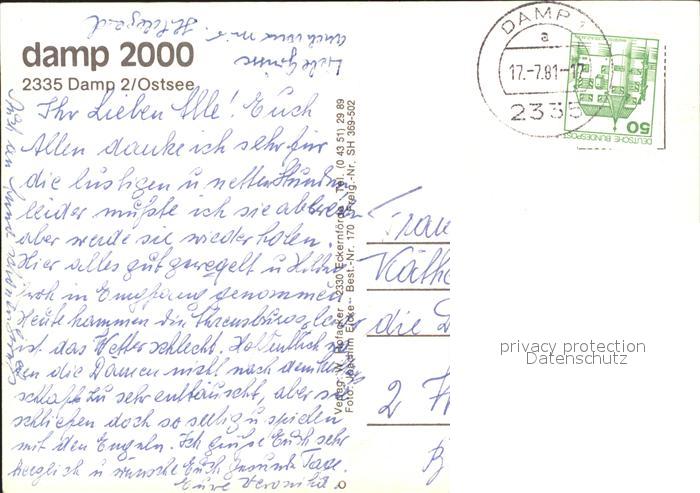 damp 2000
2335 Damp 2/Ostsee
Liebe Grüsse
auch von mir. Hildegard
Ihr Lieben Alle! Euch
Allen danke ich sehr für
die lustigen u netten Stunden
leider mußte ich sie
aber werde sie wieder holen.
Hier alles gut geregelt u
froh in Empfang genommen
Heute kommen die
ist das Wetter schlecht. Hoffentlich
die Damen nicht nach dem
schlaf zu sehr enttäuscht, aber sie
schliefen doch so seelig u spielen
mit den Engeln. Ich grüße Euch sehr
herzlich u wünsche Euch gesunde Tage.
Eure Veronika
Verlag: W. 2330 Eckernförde Tel. (0 43 51) 29 89
Foto: Joachim Best.-Nr. 170 Freig.-Nr. SH 369-502
DAMP 1
a
17.-7.81-17
2335
50
DEUTSCHE BUNDESPOST
Frau
Käthe
die
2
privacy protection
Datenschutz